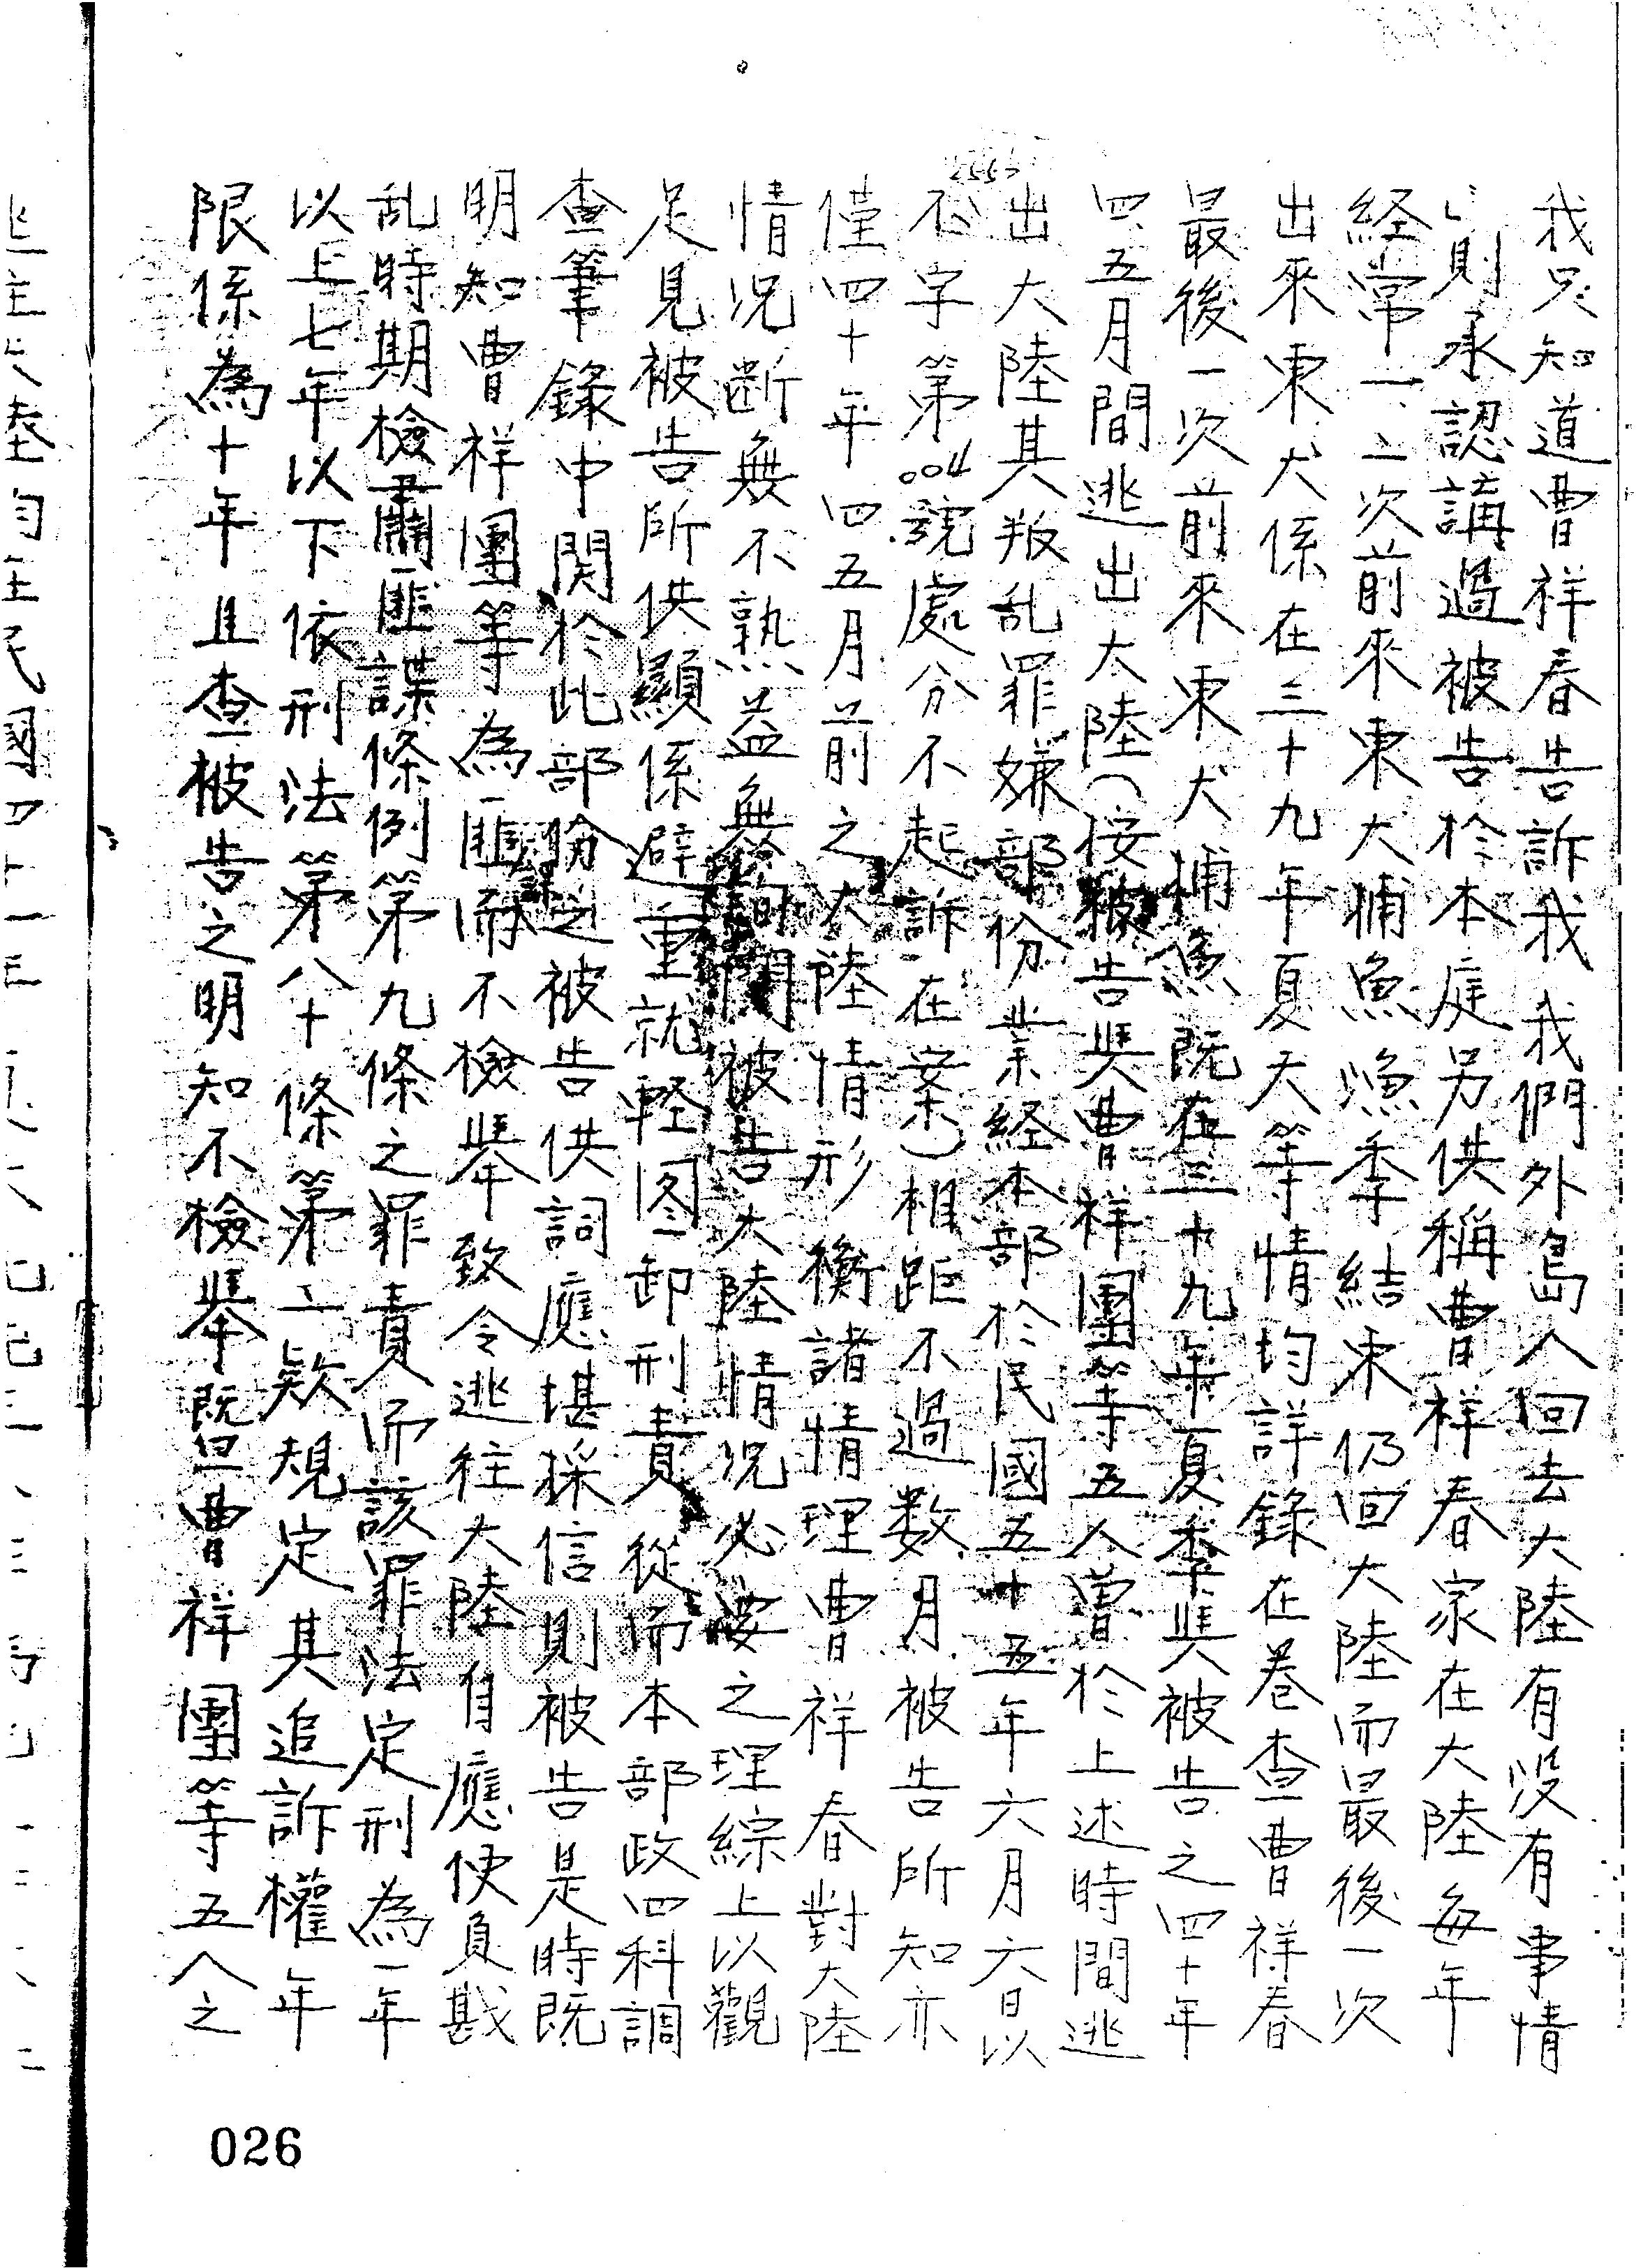 我只知道曹祥春告訴我我們外島人回去大陸有沒有事情
」則承認講過被告於本庭另供稱曹祥春家在大陸每年
経常一、二次前來東犬捕魚漁季結束仍回大陸而最後一次
出來東犬係在三十九年夏天等情均詳錄在卷查曹祥春
最後一次前來東犬捕魚既在三十九年夏季與被告之四十年
四、五月間逃出大陸（按被告與曹祥團等五人曾於上述時間逃
出大陸其叛乱罪嫌部份業経本部於民國五十五年六月六日以
不字第004號處分不起訴在案）相距不過数月被告所知亦
僅四十年四五月前之大陸情形衡諸情理曹祥春對大陸
情况断無不熟益無詢問被告大陸情况必要之理綜上以觀
足見被告所供顯係避重就輕图卸刑責從而本部政四科調
查筆錄中関於此部份之被告供詞應堪採信則被告是時既
明知曹祥團等為匪而不檢舉致令逃往大陸自應使負戡
乱時期檢肅匪諜條例第九條之罪責而該罪法定刑為一年
以上七年以下依刑法第八十條第二款規定其追訴權年
限係為十年且查被告之明知不檢舉既曹祥團等五人之
026